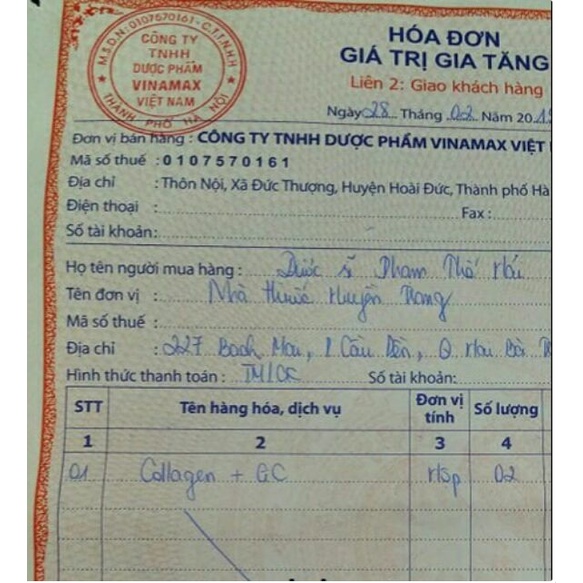 M.S.D.N: 0107570161 - C.T.T.N.H.H
CÔNG TY
TNHH
DƯỢC PHẨM
VINAMAX
VIỆT NAM
THÀNH PHỐ HÀ NỘI
HÓA ĐƠN
GIÁ TRỊ GIA TĂNG
Liên 2: Giao khách hàng
Ngày 28 Tháng 02 Năm 201
Đơn vị bán hàng : CÔNG TY TNHH DƯỢC PHẨM VINAMAX VIỆT
Mã số thuế : 0 1 0 7 5 7 0 1 6 1
Địa chỉ : Thôn Nội, Xã Đức Thượng, Huyện Hoài Đức, Thành phố Hà
Điện thoại : Fax :
Số tài khoản:
Họ tên người mua hàng : Dược sĩ Phạm Thế Hải
Tên đơn vị : Nhà thuốc Huyền Trang
Mã số thuế :
Địa chỉ : 227 Bạch Mai, P Cầu Dền, Q Hai Bà
Hình thức thanh toán : TM/CK Số tài khoản:
STT Tên hàng hóa, dịch vụ Đơn vị tính Số lượng
1 2 3 4
01 Collagen + GC Hộp 02